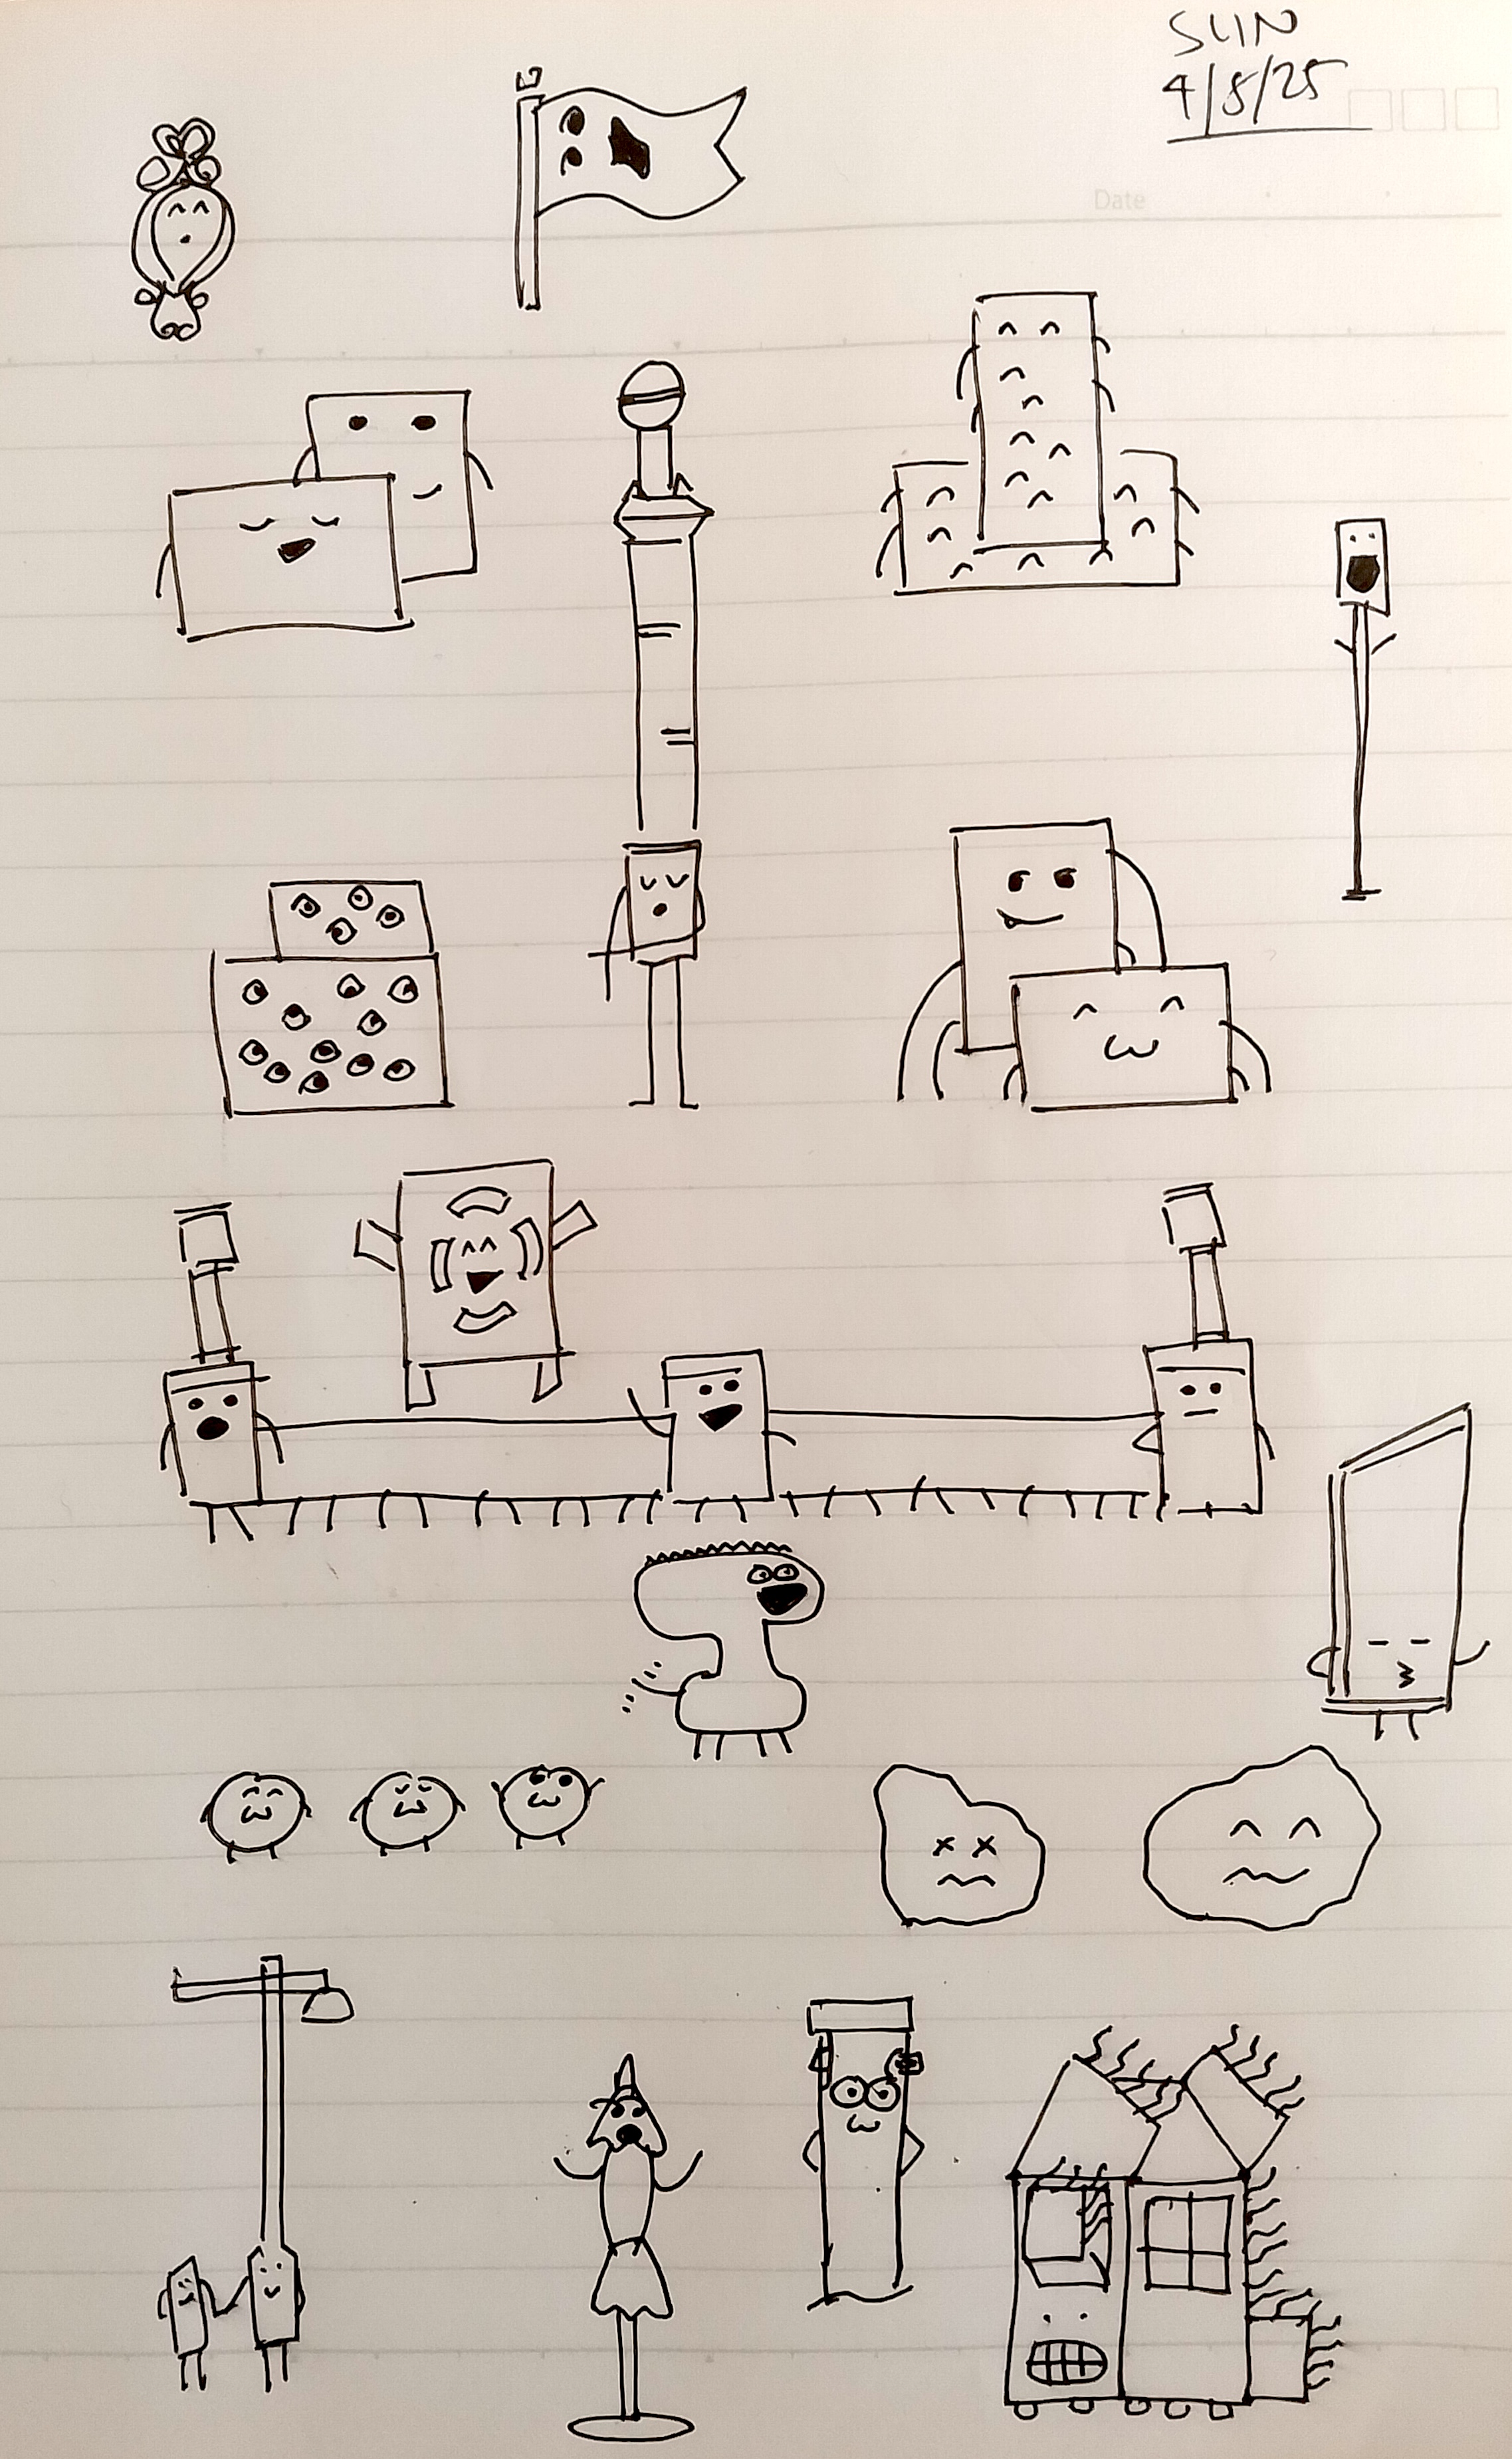 SUN
4/5/25
Date